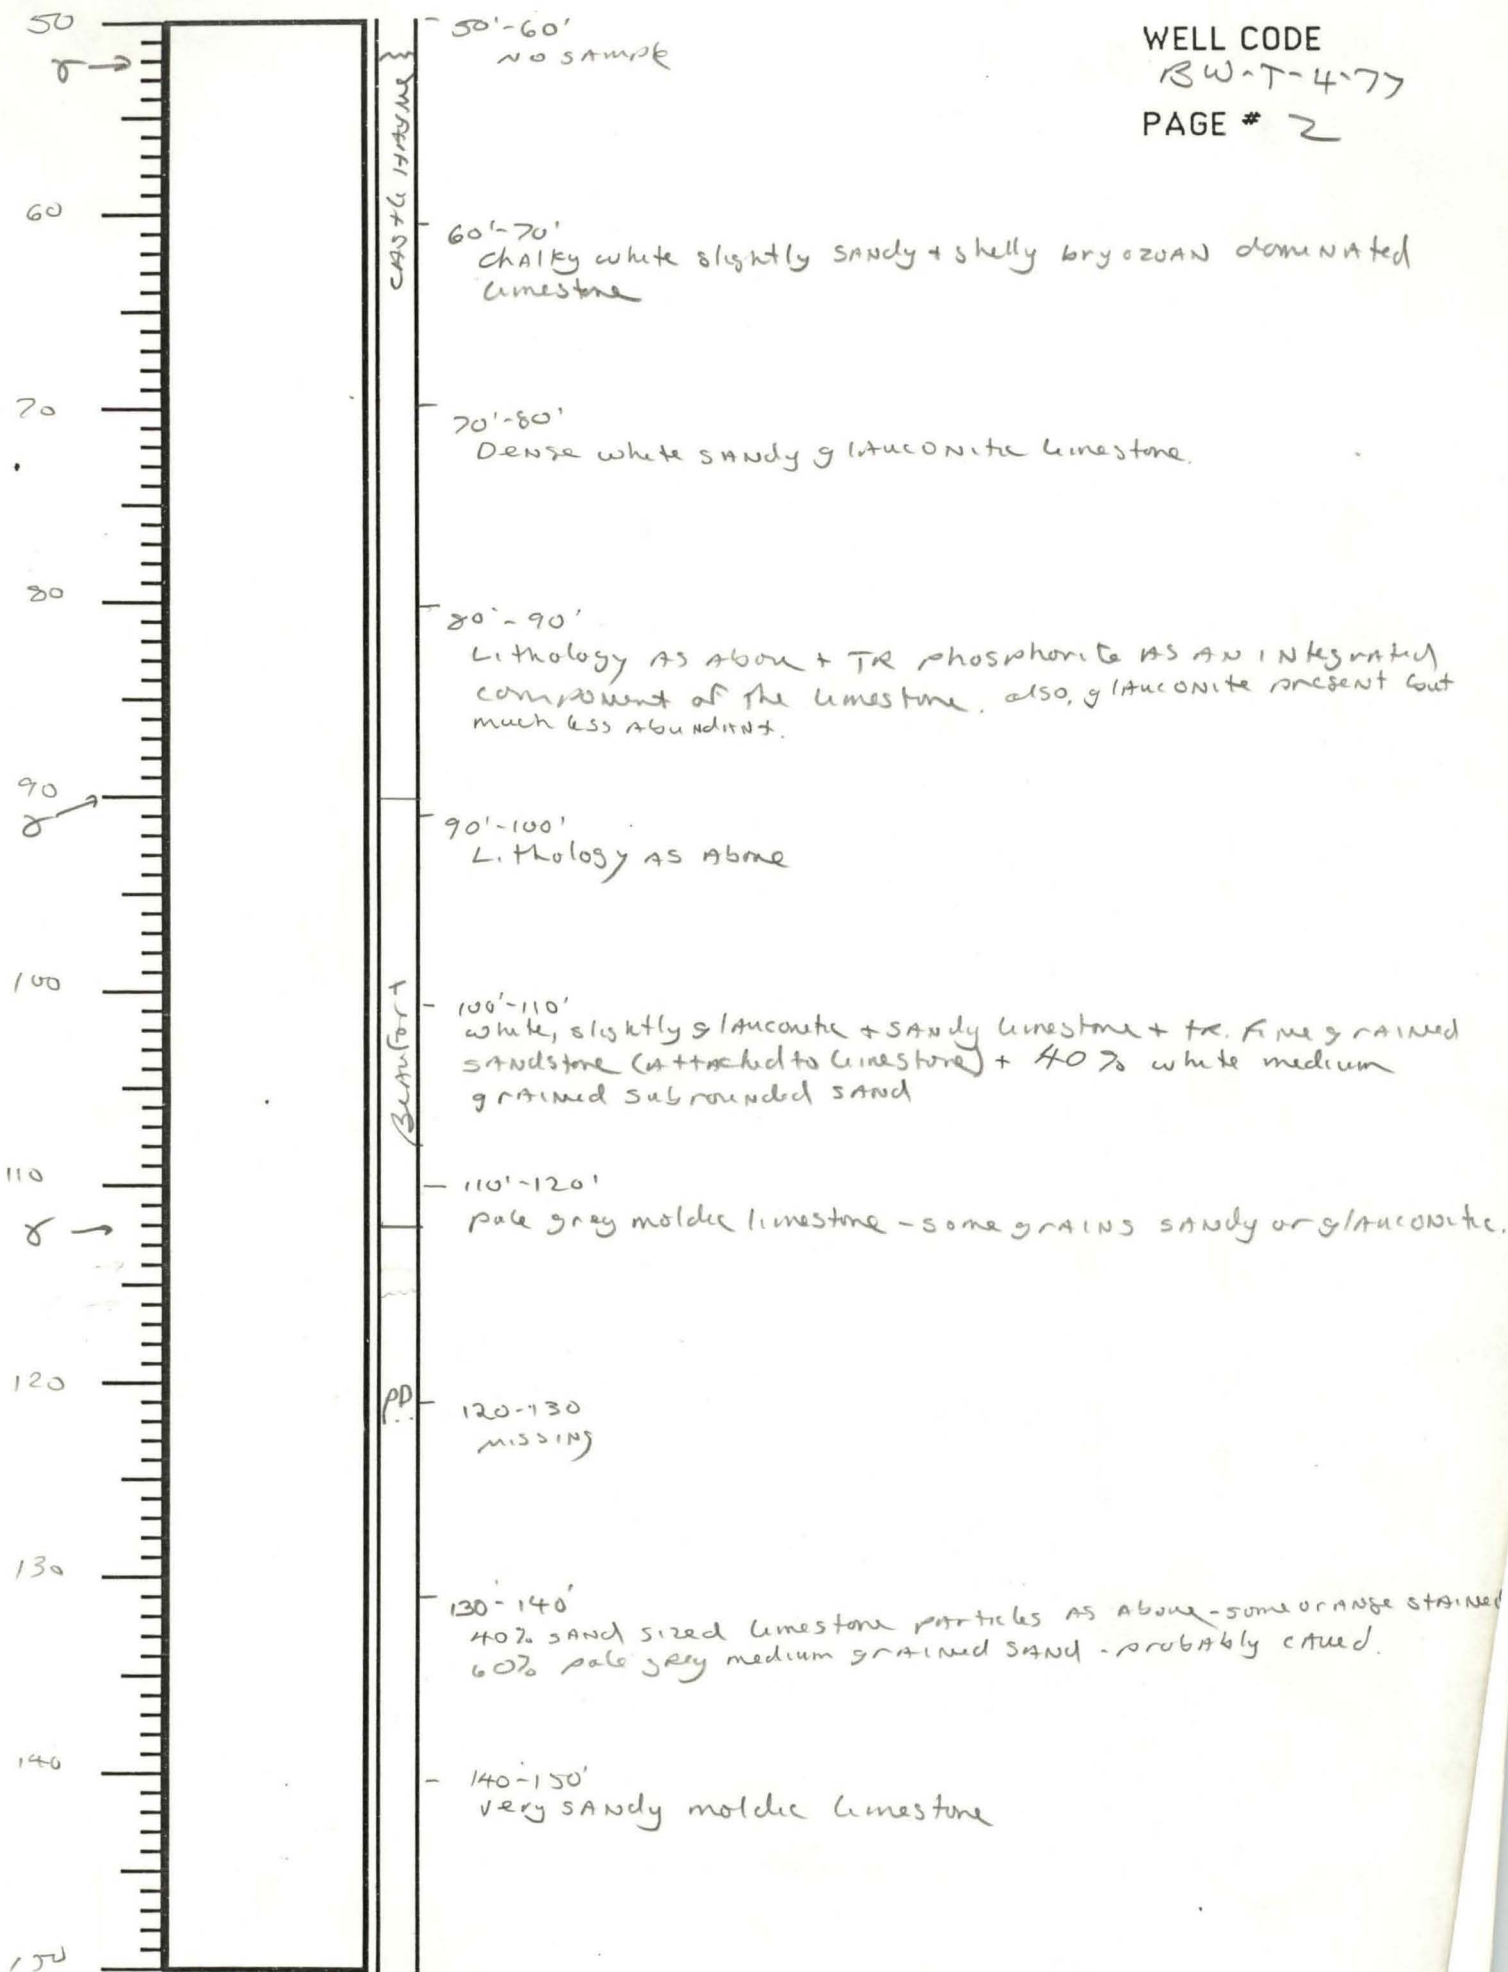 WELL CODE
BW-T-4-77
PAGE # 2
50
γ →
60
70
80
90
γ
100
110
γ →
120
130
140
150
CASTLE HAYNE
Beaufort
PD
50'-60'
NO SAMPLE
60'-70'
Chalky white slightly SANdy + shelly bryozoAN domiNAted
limestone
70'-80'
DeNse white SANdy glAucoNitic limestone.
80'-90'
Lithology AS Above + TR phosphorite AS AN INtegrated
component of the limestone. also, glAucoNite present but
much less AbuNdANt.
90'-100'
Lithology AS Above
100'-110'
white, slightly glAuconitic + SANdy limestone + tr. FiNe grAiNed
SANdstone (AttAched to limestone) + 40% white medium
grAiNed subrouNded SANd
110'-120'
pale grey moldic limestone - some grAiNs SANdy or glAucoNitic.
120-130
missiNg
130'-140'
40% SANd sized limestone pArticles AS Above - some orANge stAiNed
60% pale grey medium grAiNed SANd - probAbly cAved.
140-150'
very SANdy moldic limestone